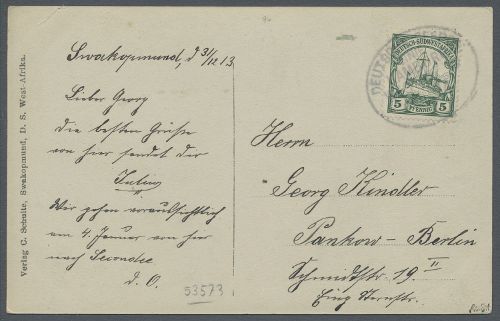 Verlag C. Schulte, Swakopmund, D. S. West-Afrika.
Swakopmund, d 31/12 13
Lieber Georg
die besten Grüsse
von hier sendet dir
Julius
Wir gehen voraussichtlich
am 4. Januar von hier
nach
53573
DEUTSCH-SÜDWESTAFRIKA
5 PFENNIG 5
DEUTSCHE
Herrn
Georg Kindler
Pankow-Berlin
Schmidtstr. 19 II
Eing